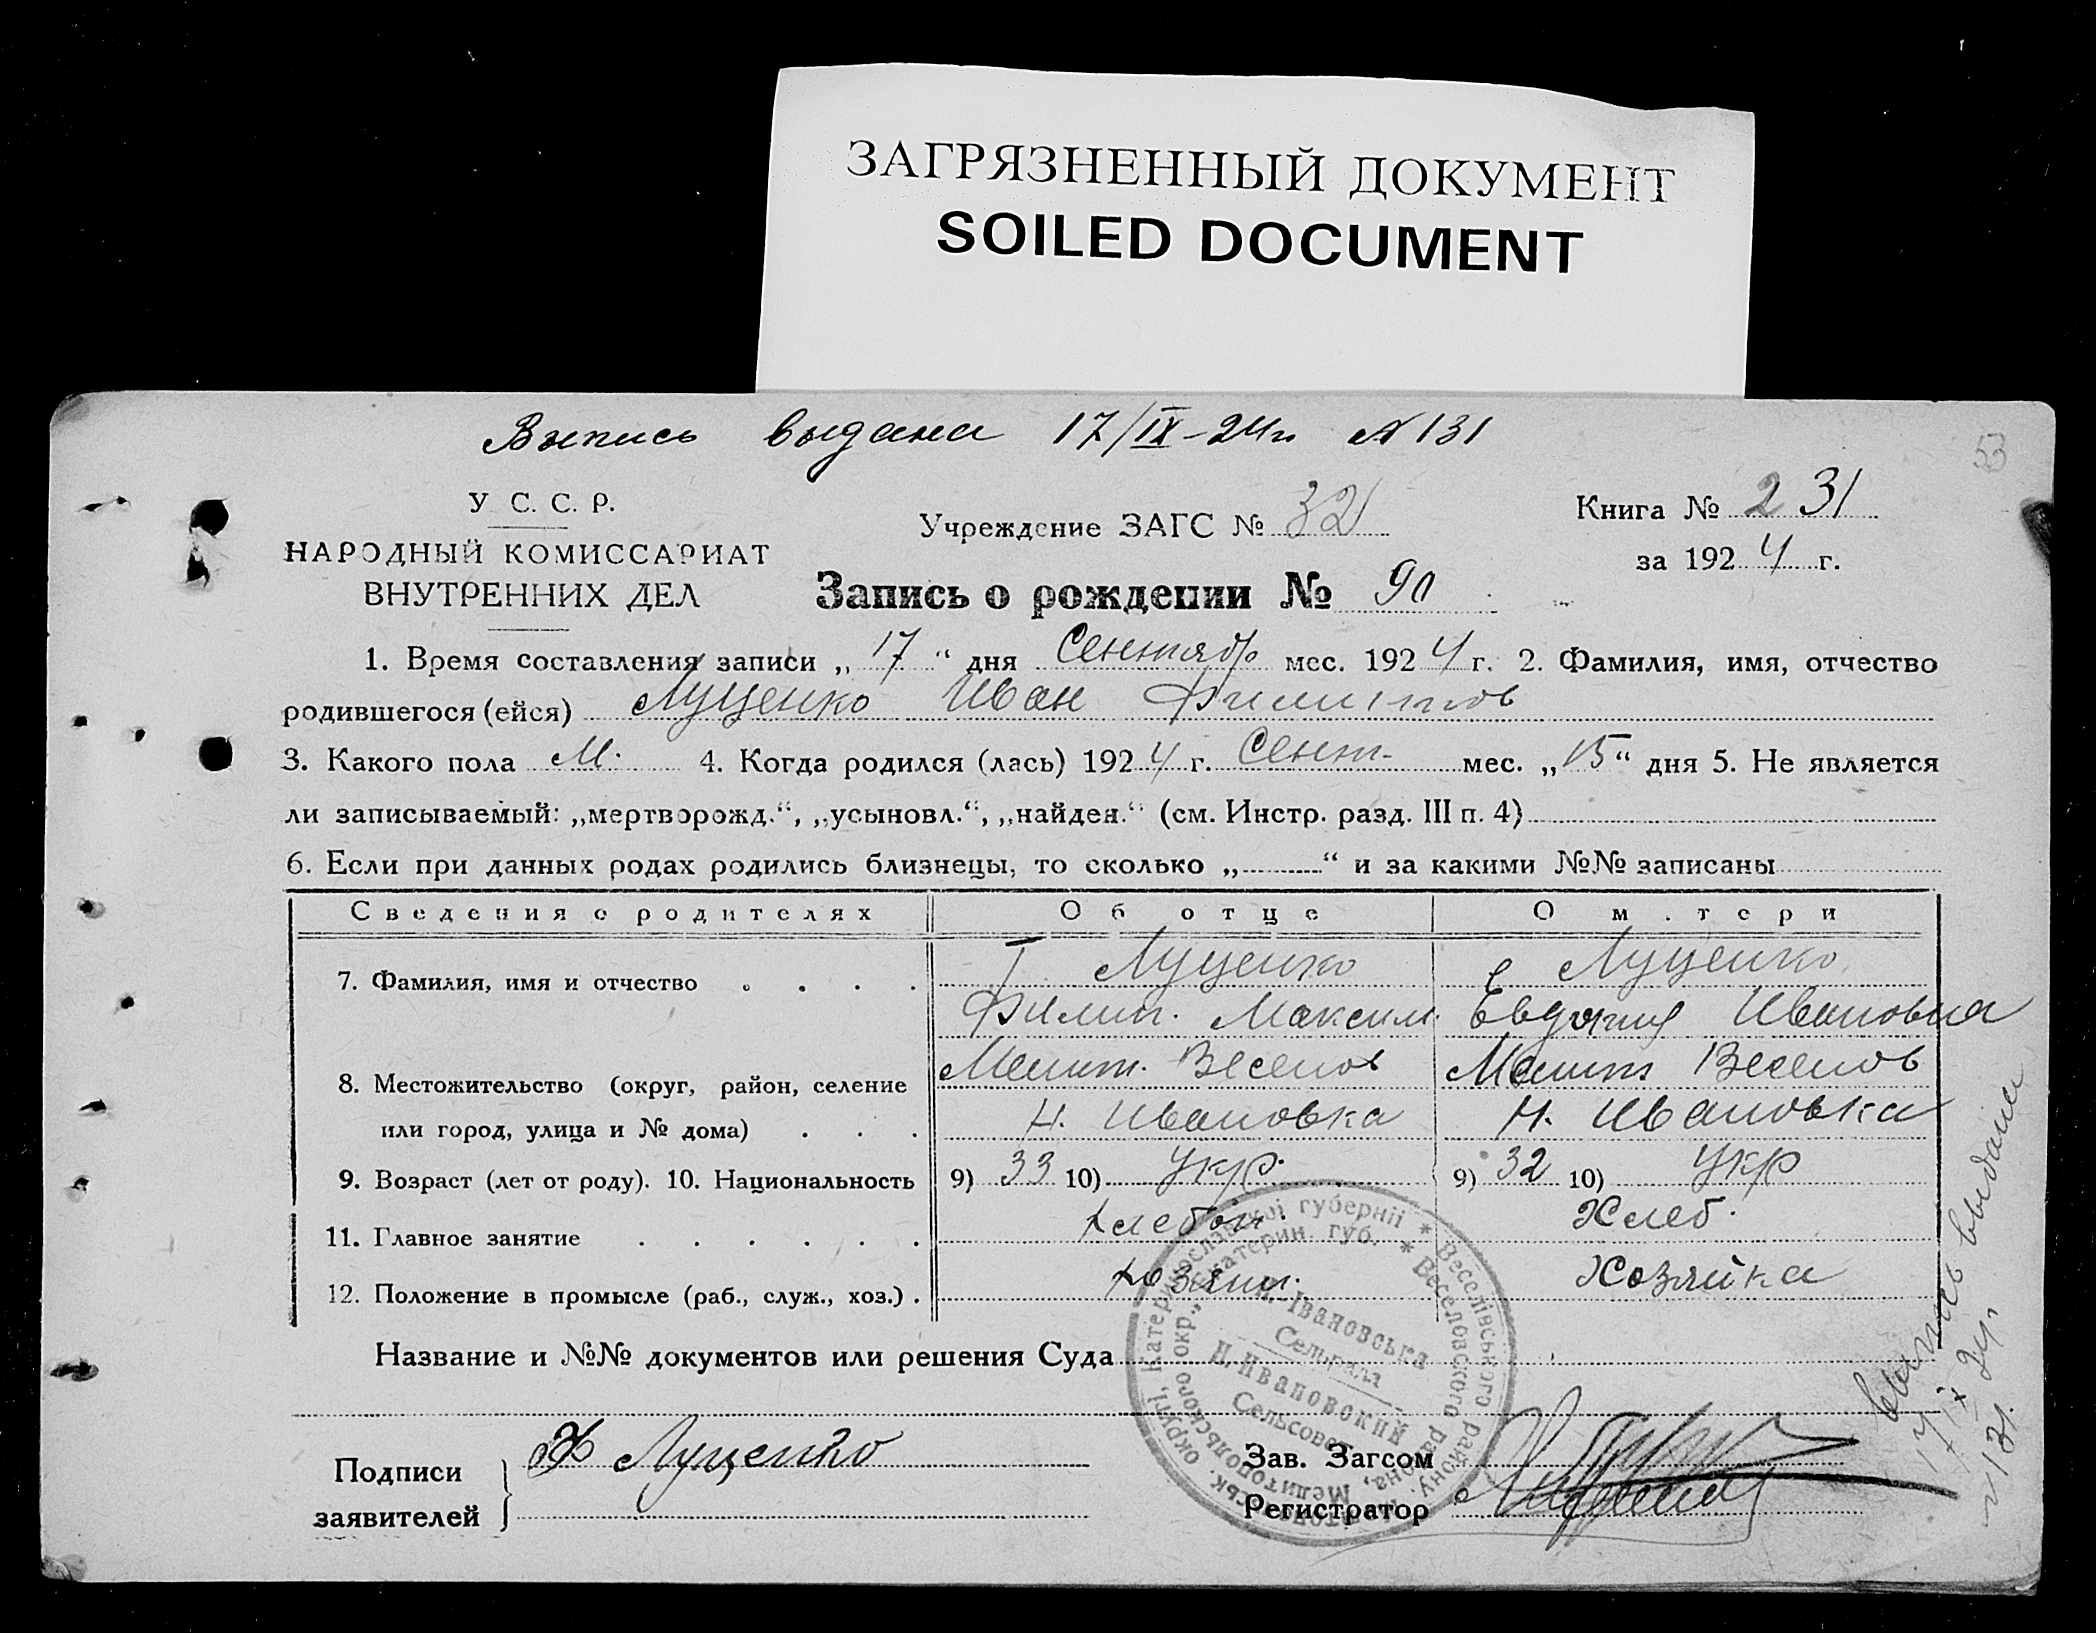 ЗАГРЯЗНЕННЫЙ ДОКУМЕНТ
SOILED DOCUMENT
Выпись выдана 17/IX-24 г. № 131
53
У. С. С. Р.
НАРОДНЫЙ КОМИССАРИАТ
ВНУТРЕННИХ ДЕЛ
Учреждение ЗАГС № 32
Книга № 2 31
за 1924 г.
Запись о рождении № 90
1. Время составления записи „17“ дня Сентябр мес. 1924 г. 2. Фамилия, имя, отчество
родившегося (ейся) Луценко Иван Филиппов
3. Какого пола М. 4. Когда родился (лась) 1924 г. Сент. мес. „15“ дня 5. Не является
ли записываемый: „мертворожд.“, „усыновл.“, „найден.“ (см. Инстр. разд. III п. 4)
6. Если при данных родах родились близнецы, то сколько „ “ и за какими №№ записаны
Сведения о родителях Об отце О матери
7. Фамилия, имя и отчество Луценко Луценко
Филип. Максим. Евдокия Ивановна
Мелит. Веселов Мелит Веселов
8. Местожительство (округ, район, селение
или город, улица и № дома) Н. Ивановка Н. Ивановка
9. Возраст (лет от роду). 10. Национальность 9) 33 10) Укр. 9) 32 10) Укр
11. Главное занятие Хлебоп. Хлеб.
12. Положение в промысле (раб., служ., хоз.) Хозяин. Хозяйка
Название и №№ документов или решения Суда
Катеринославської губернії * Веселівського району, округі,
Екатерин. губ. * Веселовского района, Мелитопольского окр.,
Н.-Івановська
Сельрада
Н. Ивановский
Сельсовет
Подписи
заявителей
Ф Луценко
Зав. Загсом
Регистратор
Выпись выдана
17/IX 24 г.
№ 131.